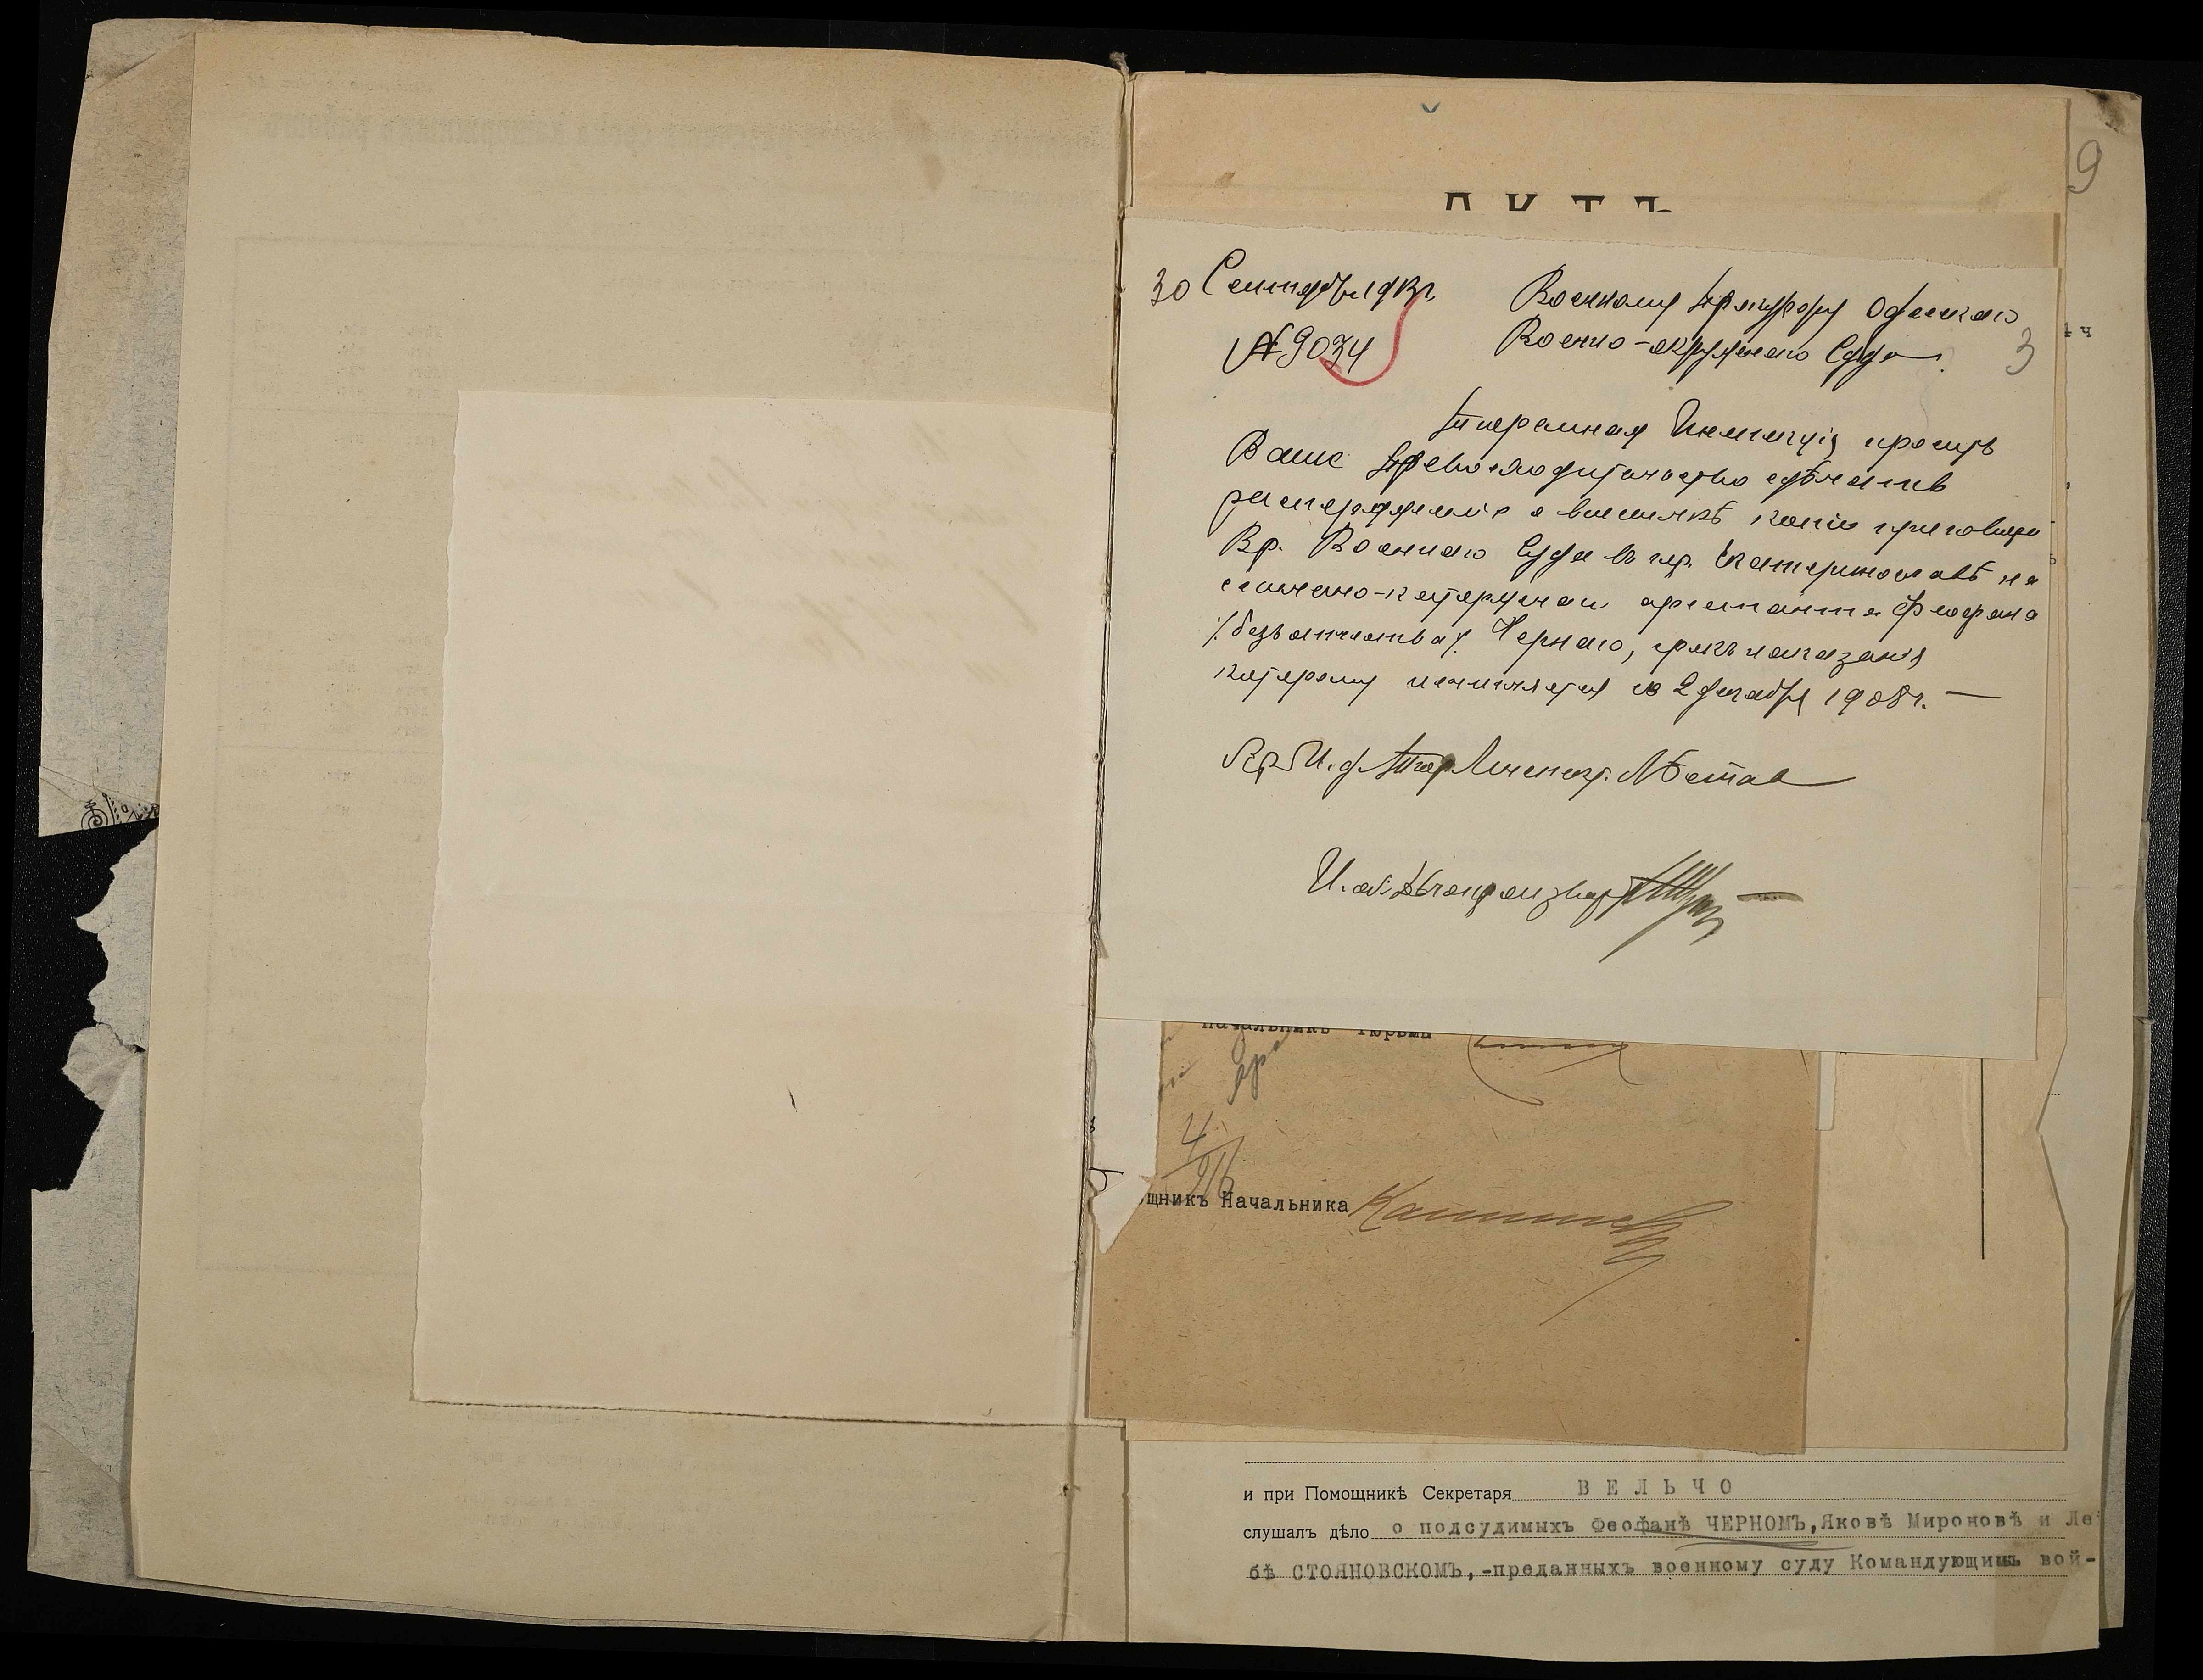 АКТЪ
9
30 Сентября 1913 г.
№ 9034
Военному Прокурору Одесскаго
Военно-окружнаго Суда.
3
Тюремная Инспекція проситъ
Ваше Превосходительство сдѣлать
распоряженіе о высылкѣ копіи приговора
Вр. Военнаго Суда въ гор. Екатеринославѣ на
ссыльно-каторжнаго арестанта Феофана
/безъ отчества/ Чернаго, срокъ наказанія
которому исчисляется съ 2 декабря 1908 г. —
И. д. Тюр. Инспект.
И. об. Дѣлопроизвод.
Начальникъ Тюрьмы
4
916
щникъ Начальника
и при Помощникѣ Секретаря ВЕЛЬЧО
слушалъ дѣло о подсудимыхъ Феофанѣ ЧЕРНОМЪ, Яковѣ Мироновѣ и Ле
бѣ СТОЯНОВСКОМЪ,-преданныхъ военному суду Командующимъ вой-